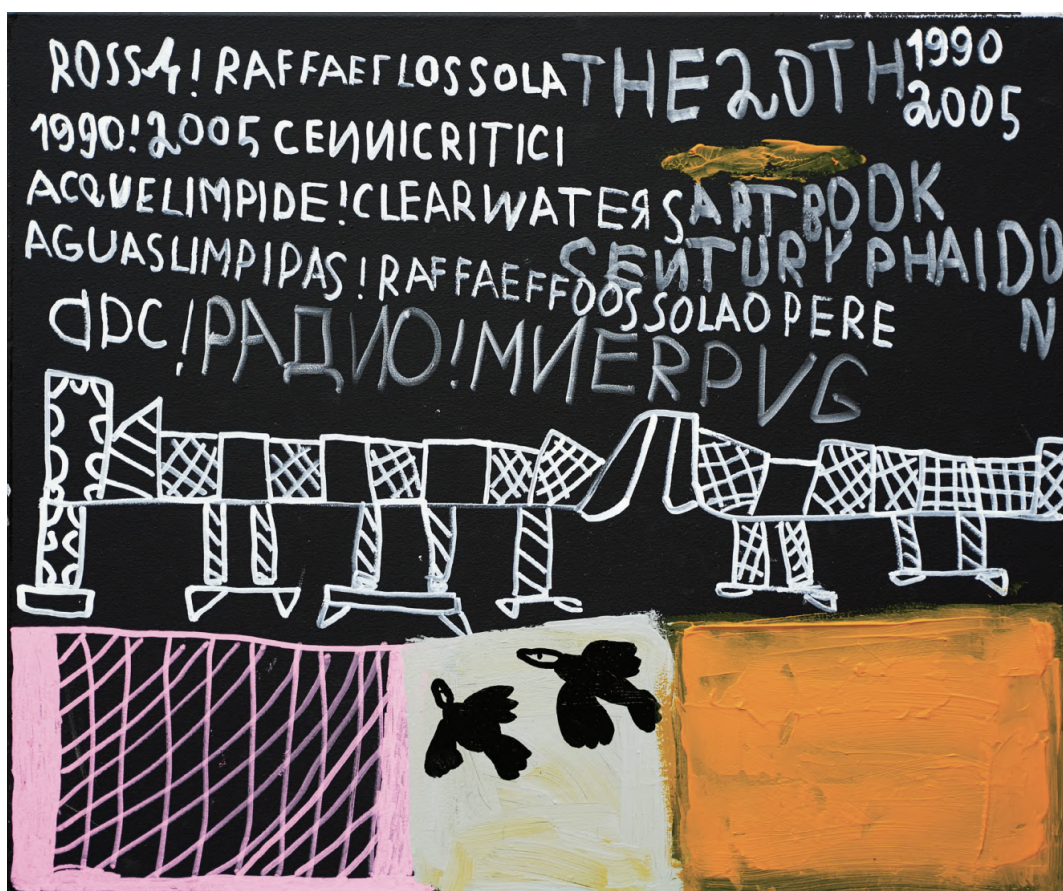 ROSSA! RAFFAELLOSSOLA THE 20TH 1990
2005
1990! 2005 CEИИICRITICI
ACQUELIMPIDE! CLEARWATEЯS ARTBOOK
AGUASLIMPIDAS! RAFFAEFFOOSSOLAOPERE
CEИTURY PHAIDO
N
! РАДИО! МИERPVG